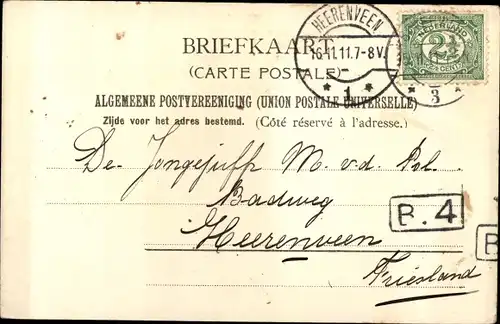 BRIEFKAART
(CARTE POSTALE)
ALGEMEENE POSTVEREENIGING (UNION POSTALE UNIVERSELLE)
Zijde voor het adres bestemd. (Côté réservé à l'adresse.)
HEERENVEEN
16.11.11.7-8V.
1
NEDERLAND
2½
CENT
3
De Jongejuff M. v. d. Pol.
Badweg
B. 4
Heerenveen
B
Friesland